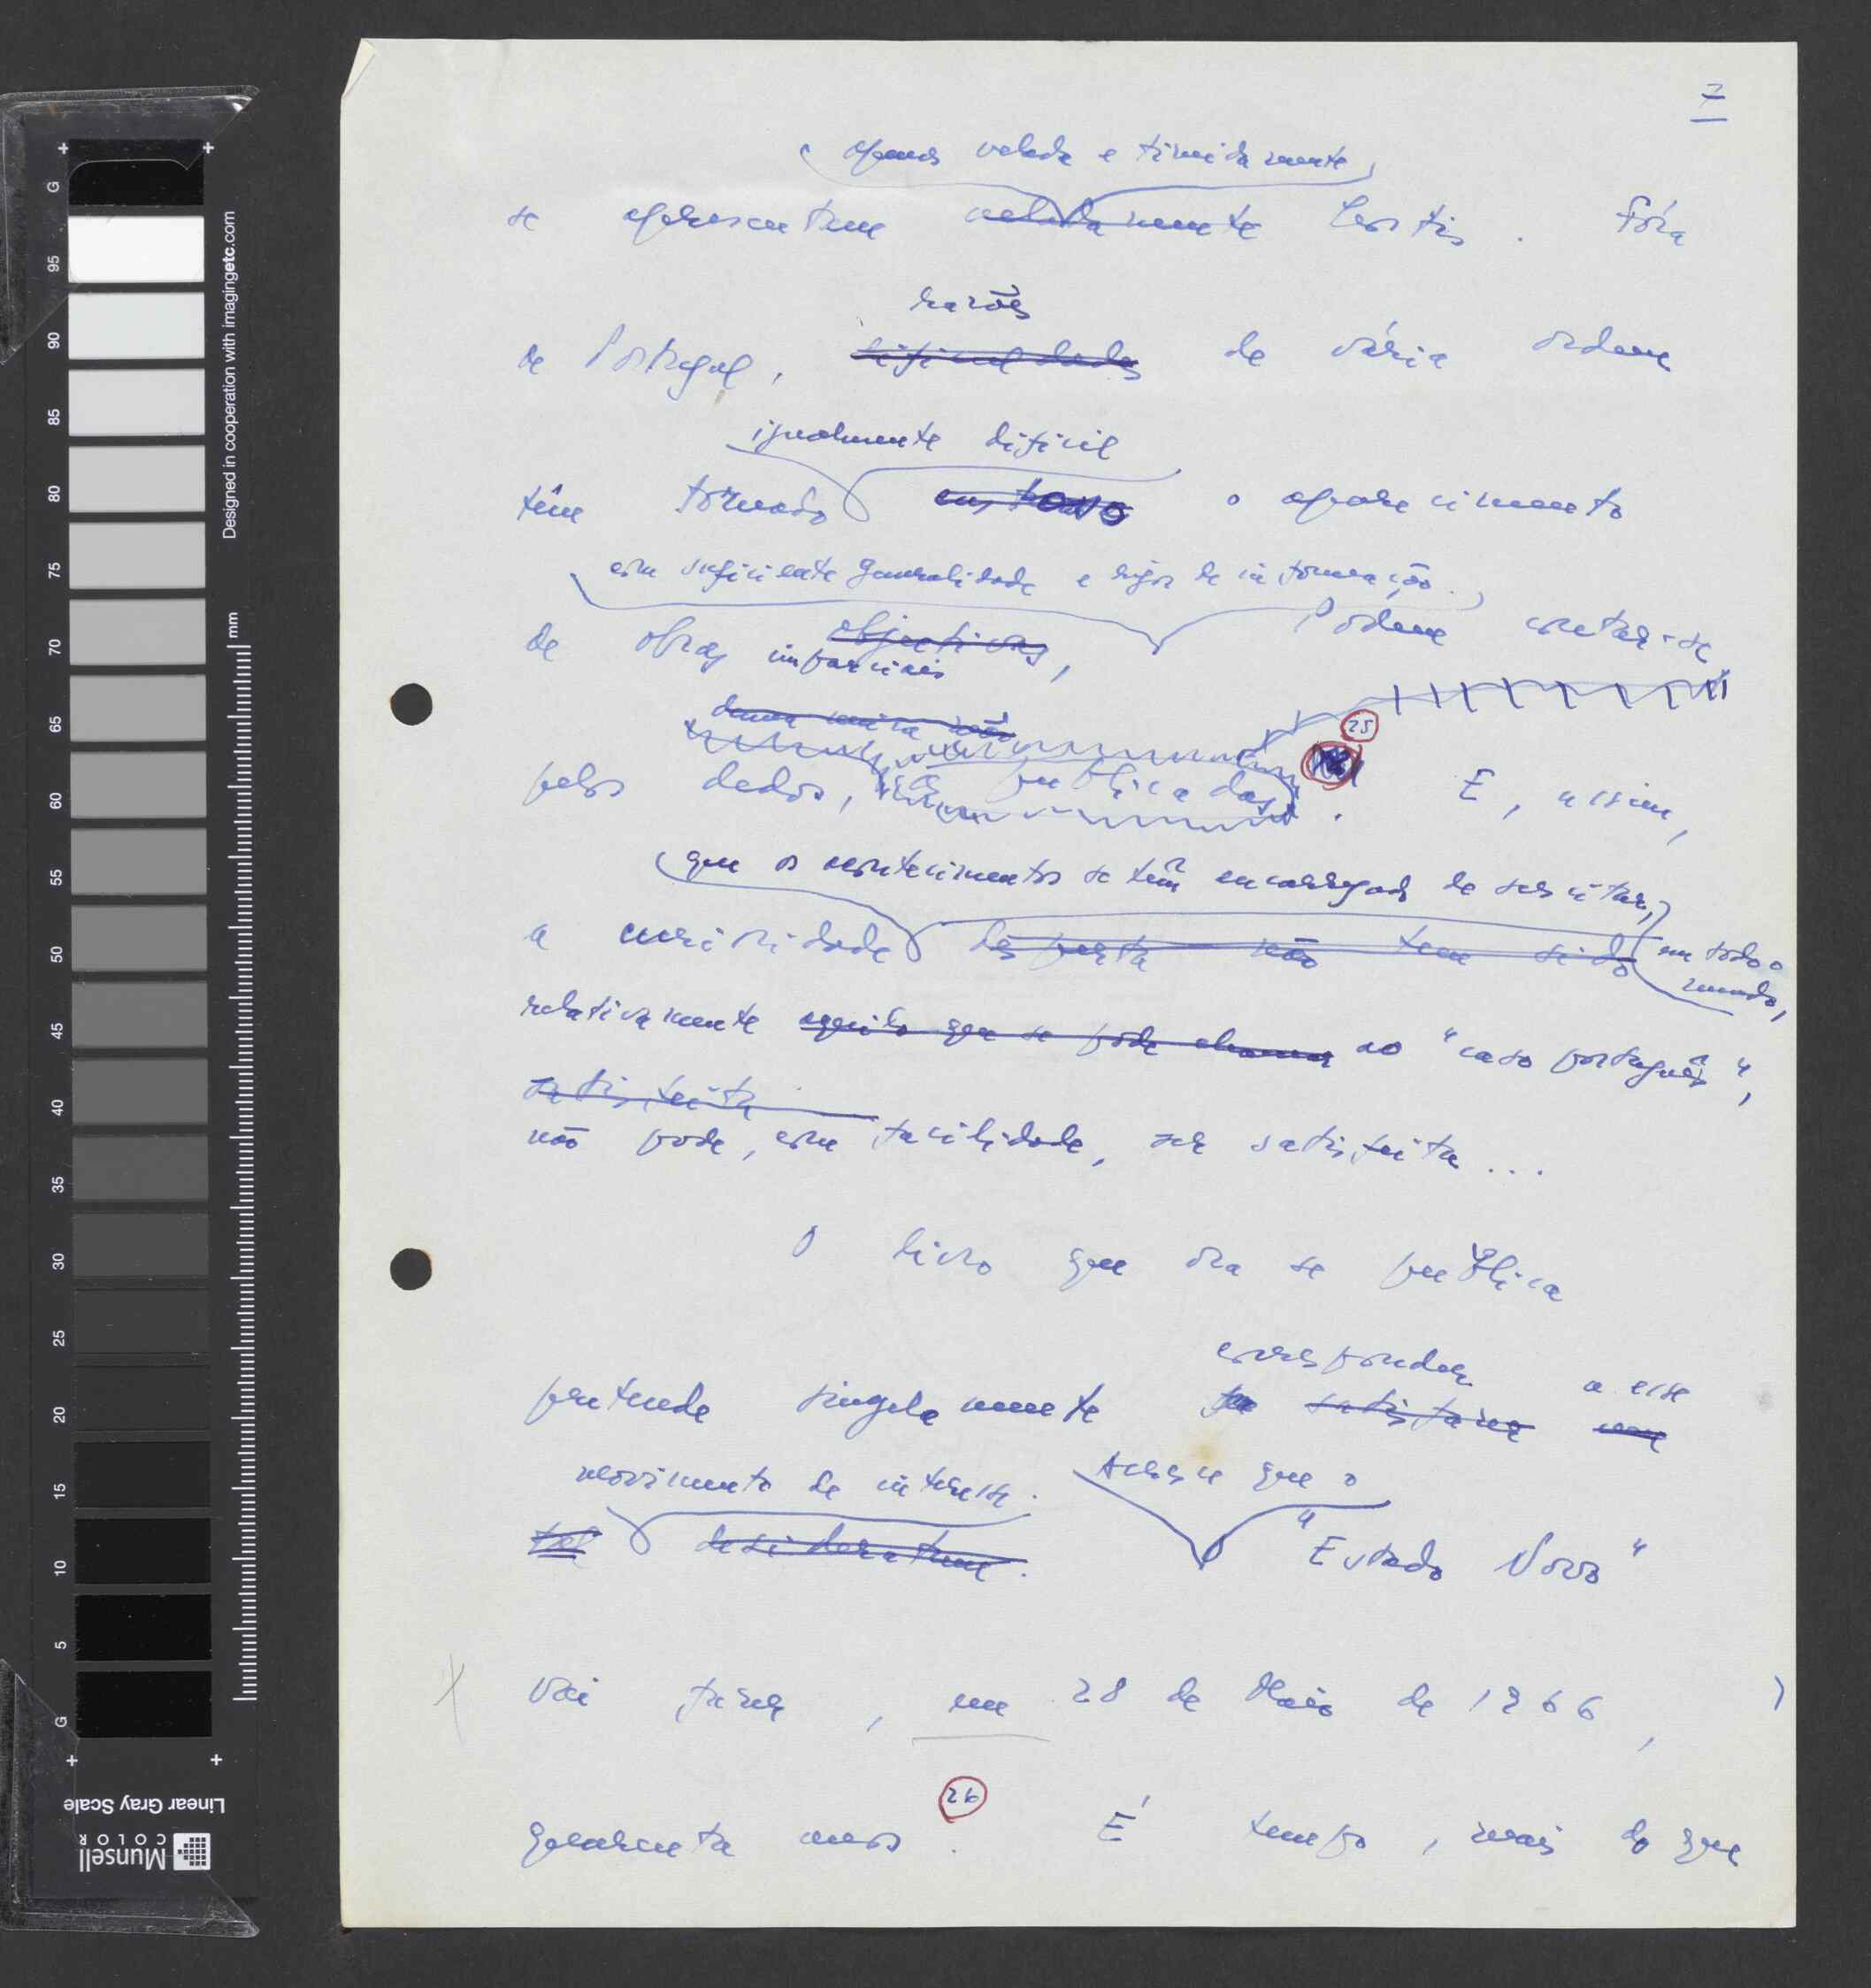 7
apenas velada e timidamente
se apresentem veladamente hostis. Fóra
razões
de Portugal, dificuldades de vária ordem
igualmente dificil
têm tornado o aparecimento
com suficiente generalidade e rigor de informação.
de obras objectivas, imparciais Podem contar-se,
25
pelos dedos, as publicadas. E, assim,
que os acontecimentos se têm encarregado de suscitar,
a curiosidade desperta não tem sido em todo o mundo,
relativamente aquilo que se pode chamar ao "caso português",
satisfeita
não pode, com facilidade, ser satisfeita...
O livro que ora se publica
corresponder a esse
pretende singelamente satisfazer um
movimento de interesse. Acresce que o
tal desideratum. "Estado Novo"
vai fazer, em 28 de Maio de 1966,
26
quarenta anos. É tempo, mais do que
Designed in cooperation with imagingetc.com
mm
G 95 90 85 80 75 70 65 60 55 50 45 40 35 30 25 20 15 10 5 G
Linear Gray Scale
Munsell
COLOR